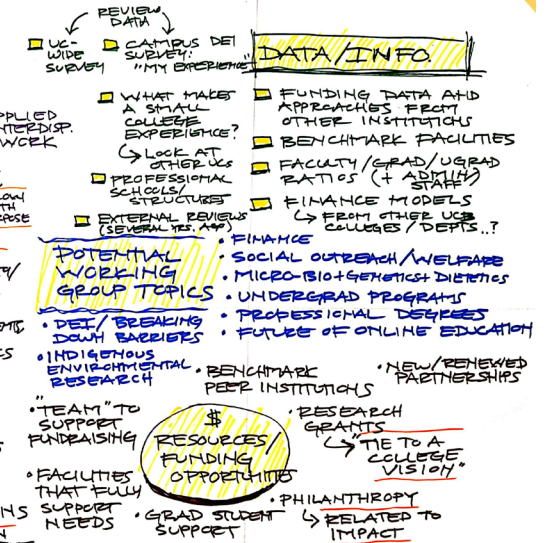 REVIEW
DATA
UC-
WIDE
SURVEY
CAMPUS DEI
SURVEY:
"MY EXPERIENCE"
DATA/INFO.
WHAT MAKES
A SMALL
COLLEGE
EXPERIENCE?
LOOK AT
OTHER UCs
PROFESSIONAL
SCHOOLS/
STRUCTURES
EXTERNAL REVIEWS
(SEVERAL YRS. AGO)
FUNDING DATA AND
APPROACHES FROM
OTHER INSTITUTIONS
BENCHMARK FACILITIES
FACULTY/GRAD/UGRAD
RATIOS (+ ADMIN/
STAFF)
FINANCE MODELS
FROM OTHER UCB
COLLEGES/DEPTS..?
APPLIED
INTERDISP.
WORK
POTENTIAL
WORKING
GROUP TOPICS
• FINANCE
• SOCIAL OUTREACH/WELFARE
• MICRO-BIO+GENETICS+DIETETICS
• UNDERGRAD PROGRAMS
• PROFESSIONAL DEGREES
• FUTURE OF ONLINE EDUCATION
• DEI/BREAKING
DOWN BARRIERS
• INDIGENOUS
ENVIRONMENTAL
RESEARCH
• BENCHMARK
PEER INSTITUTIONS
• NEW/RENEWED
PARTNERSHIPS
• "TEAM" TO
SUPPORT
FUNDRAISING
$
RESOURCES/
FUNDING
OPPORTUNITIES
• RESEARCH
GRANTS
"TIE TO A
COLLEGE
VISION"
• FACILITIES
THAT FULLY
SUPPORT
NEEDS
• GRAD STUDENT
SUPPORT
• PHILANTHROPY
RELATED TO
IMPACT